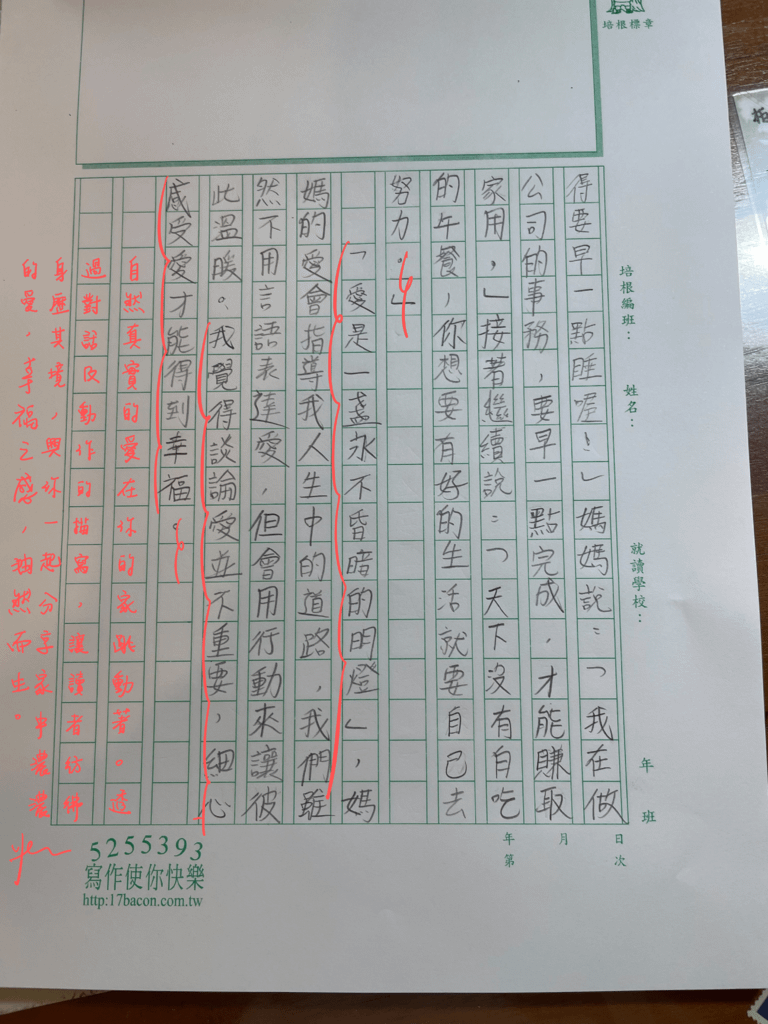 培根標章
培根編班：
姓名：
就讀學校：
年
班
得要早一點睡喔！」媽媽說：「我在做
公司的事務，要早一點完成，才能賺取
家用，」接著繼續說：「天下沒有自吃
的午餐，你想要有好的生活就要自己去
努力。」
「愛是一盞永不昏暗的明燈」，媽
媽的愛會指導我人生中的道路，我們雖
然不用言語表達愛，但會用行動來讓彼
此溫暖。我覺得談論愛並不重要，細心
感受愛才能得到幸福。
自然真實的愛在你的家跳動著。透
過對話及動作的描寫，讓讀者彷彿
身歷其境，與你一起分享家中濃濃
的愛，幸福之感，油然而生。
年 月 日
第 次
5255393
寫作使你快樂
http:17bacon.com.tw